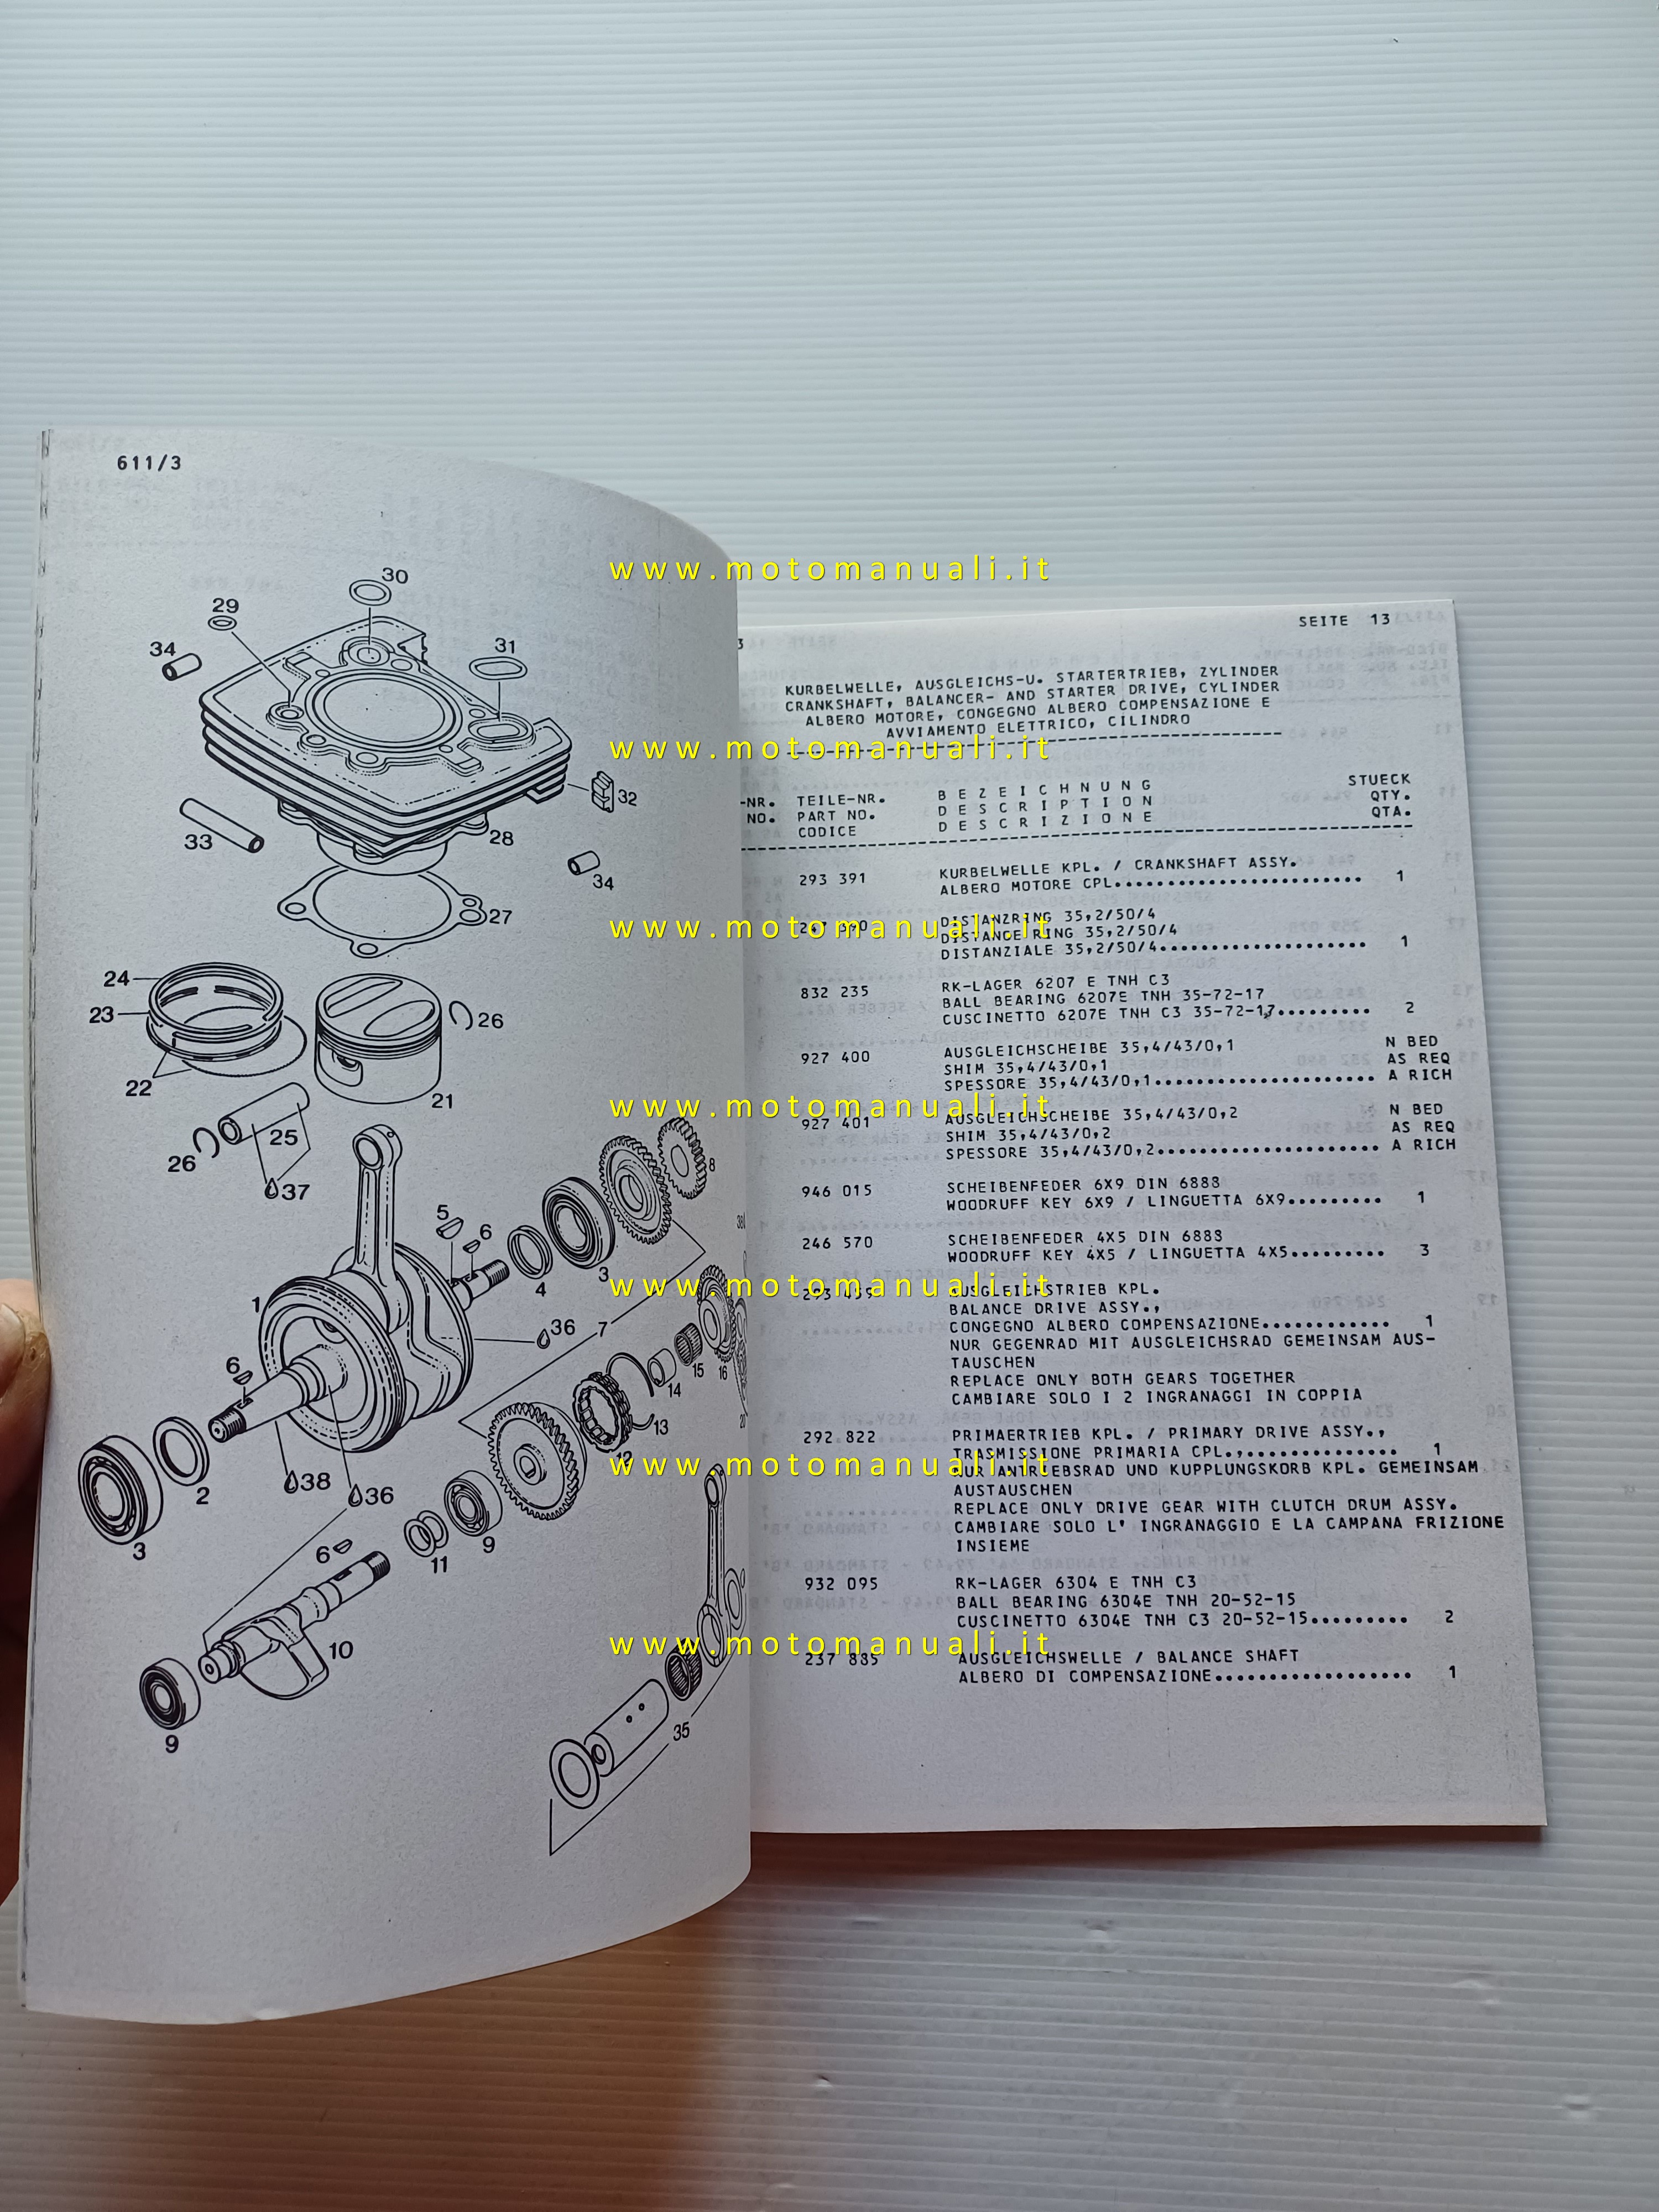 611/3
30
29
34
31
32
33
28
34
27
24
23
26
22
21
25
26
37
8
5
6
3
4
1
36
7
6
15
16
14
13
12
38
2
36
3
9
11
6
10
9
35
www.motomanuali.it
SEITE 13
KURBELWELLE, AUSGLEICHS-U. STARTERTRIEB, ZYLINDER
CRANKSHAFT, BALANCER- AND STARTER DRIVE, CYLINDER
ALBERO MOTORE, CONGEGNO ALBERO COMPENSAZIONE E
AVVIAMENTO ELETTRICO, CILINDRO
www.motomanuali.it
-NR. TEILE-NR. BEZEICHNUNG STUECK
NO. PART NO. DESCRIPTION QTY.
CODICE DESCRIZIONE QTA.
293 391 KURBELWELLE KPL. / CRANKSHAFT ASSY.
ALBERO MOTORE CPL........................ 1
DISTANZRING 35,2/50/4
www.motomanuali.it
DISTANCE RING 35,2/50/4
DISTANZIALE 35,2/50/4.................... 1
832 235 RK-LAGER 6207 E TNH C3
BALL BEARING 6207E TNH 35-72-17
CUSCINETTO 6207E TNH C3 35-72-17......... 2
927 400 AUSGLEICHSCHEIBE 35,4/43/0,1 N BED
SHIM 35,4/43/0,1 AS REQ
SPESSORE 35,4/43/0,1..................... A RICH
www.motomanuali.it
927 401 AUSGLEICHSCHEIBE 35,4/43/0,2 N BED
SHIM 35,4/43/0,2 AS REQ
SPESSORE 35,4/43/0,2..................... A RICH
946 015 SCHEIBENFEDER 6X9 DIN 6888
WOODRUFF KEY 6X9 / LINGUETTA 6X9......... 1
246 570 SCHEIBENFEDER 4X5 DIN 6888
WOODRUFF KEY 4X5 / LINGUETTA 4X5......... 3
www.motomanuali.it
AUSGLEICHSTRIEB KPL.
BALANCE DRIVE ASSY.,
CONGEGNO ALBERO COMPENSAZIONE............ 1
NUR GEGENRAD MIT AUSGLEICHSRAD GEMEINSAM AUS-
TAUSCHEN
REPLACE ONLY BOTH GEARS TOGETHER
CAMBIARE SOLO I 2 INGRANAGGI IN COPPIA
292 822 PRIMAERTRIEB KPL. / PRIMARY DRIVE ASSY.,
TRASMISSIONE PRIMARIA CPL.,.............. 1
www.motomanuali.it
NUR ANTRIEBSRAD UND KUPPLUNGSKORB KPL. GEMEINSAM
AUSTAUSCHEN
REPLACE ONLY DRIVE GEAR WITH CLUTCH DRUM ASSY.
CAMBIARE SOLO L' INGRANAGGIO E LA CAMPANA FRIZIONE
INSIEME
932 095 RK-LAGER 6304 E TNH C3
BALL BEARING 6304E TNH 20-52-15
CUSCINETTO 6304E TNH C3 20-52-15......... 2
www.motomanuali.it
237 885 AUSGLEICHSWELLE / BALANCE SHAFT
ALBERO DI COMPENSAZIONE.................. 1